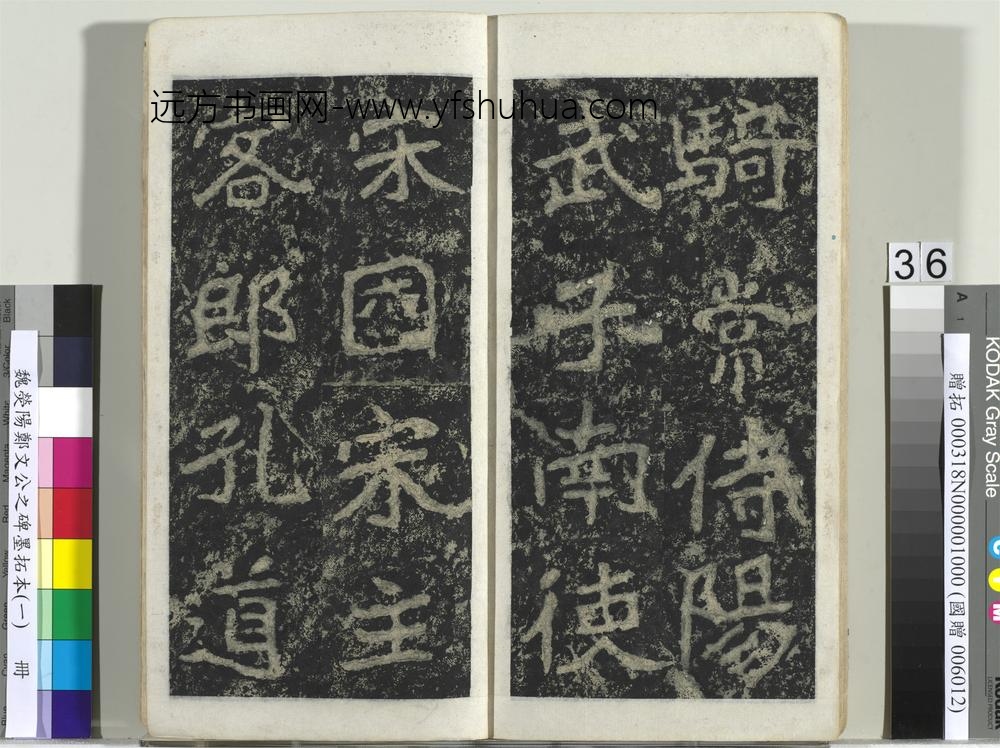 远方书画网-www.yfshuhua.com
騎常侍陽
武子南使
宋國宋主
客郎孔道
36
魏滎陽鄭文公之碑墨拓本(一) 冊
贈拓 000318N000001000 (國贈 006012)
KODAK Gray Scale
A 1
C
Y
M
Kodak
LICENSED PRODUCT
Black
3/Color
White
Magenta
Red
Yellow
Green
Cyan
Blue